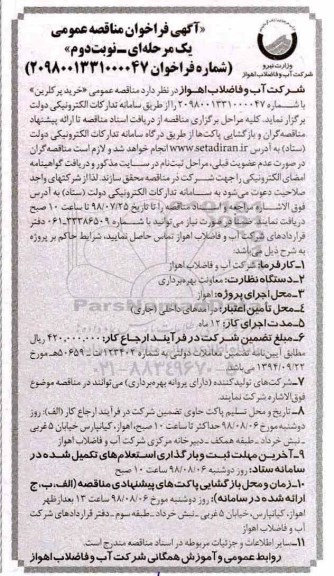 «آگهی فراخوان مناقصه عمومی
یک مرحله‌ای ـ نوبت دوم»
(شماره فراخوان ۲۰۹۸۰۰۱۳۳۱۰۰۰۰۴۷)
وزارت نیرو
شرکت آب و فاضلاب اهواز
شرکت آب و فاضلاب اهواز در نظر دارد مناقصه عمومی «خرید پرکلرین»
با شماره ۲۰۹۸۰۰۱۳۳۱۰۰۰۰۴۷ را از طریق سامانه تدارکات الکترونیکی دولت
برگزار نماید. کلیه مراحل برگزاری مناقصه از دریافت اسناد مناقصه تا ارائه پیشنهاد
مناقصه‌گران و بازگشایی پاکت‌ها از طریق درگاه سامانه تدارکات الکترونیکی دولت
(ستاد) به آدرس www.setadiran.ir انجام خواهد شد و لازم است مناقصه‌گران
در صورت عدم عضویت قبلی، مراحل ثبت‌نام در سایت مذکور و دریافت گواهینامه
امضای الکترونیکی را جهت شرکت در مناقصه محقق سازند. لذا از شرکتهای واجد
صلاحیت دعوت می‌شود به سامانه تدارکات الکترونیکی دولت (ستاد) به آدرس
فوق الاشاره مراجعه و اسناد مناقصه را تا تاریخ ۹۸/۰۷/۲۵ تا ساعت ۱۰ صبح
دریافت نمایند. در صورت نیاز می‌توانید با شماره ۳۳۳۸۶۵۰۹-۰۶۱ دفتر
قراردادهای شرکت آب و فاضلاب اهواز تماس حاصل نمایید، شرایط حاکم بر پروژه
به شرح ذیل می‌باشد.
۱ـ کارفرما: شرکت آب و فاضلاب اهواز
۲ـ دستگاه نظارت: معاونت بهره‌برداری
۳ـ محل اجرای پروژه: اهواز
۴ـ محل تأمین اعتبار: درآمدهای داخلی (جاری)
۵ـ مدت اجرای کار: ۱۲ ماه
۶ـ مبلغ تضمین شرکت در فرآیند ارجاع کار: ۴۲۰,۰۰۰,۰۰۰ ریال
مطابق آیین‌نامه تضمین معاملات دولتی به شماره ۱۲۳۴۰۲/ت ۵۰۶۵۹هـ مورخ
۱۳۹۴/۰۹/۲۲ می‌باشد
۷ـ شرکت‌های تولیدکننده (دارای پروانه بهره‌برداری) می‌توانند در مناقصه موضوع
فوق‌الاشاره شرکت نمایند.
۸ـ تاریخ و محل تسلیم پاکت حاوی تضمین شرکت در فرآیند ارجاع کار (الف): روز
دوشنبه مورخ ۹۸/۰۸/۰۶ حداکثر تا ساعت ۱۰ صبح، اهواز، کیانپارس خیابان ۵ غربی
ـ نبش خرداد ـ طبقه همکف ـ دبیرخانه مرکزی شرکت آب و فاضلاب اهواز
۹ـ آخرین مهلت ثبت و بارگذاری استعلام‌های تکمیل شده در
سامانه ستاد: روز دوشنبه مورخ ۹۸/۰۸/۰۶ ساعت ۱۰ صبح
۱۰ـ زمان و محل بازگشایی پاکت‌های پیشنهادی مناقصه (الف، ب، ج
ارائه شده در سامانه): روز دوشنبه مورخ ۹۸/۰۸/۰۶ ساعت ۱۳ بعدازظهر
اهواز، کیانپارس، خیابان ۵ غربی ـ نبش خرداد ـ طبقه سوم ـ دفتر قراردادهای شرکت
آب و فاضلاب اهواز
۱۱ـ سایر اطلاعات و جزئیات مربوطه در اسناد مناقصه مندرج است.
روابط عمومی و آموزش همگانی شرکت آب و فاضلاب اهواز